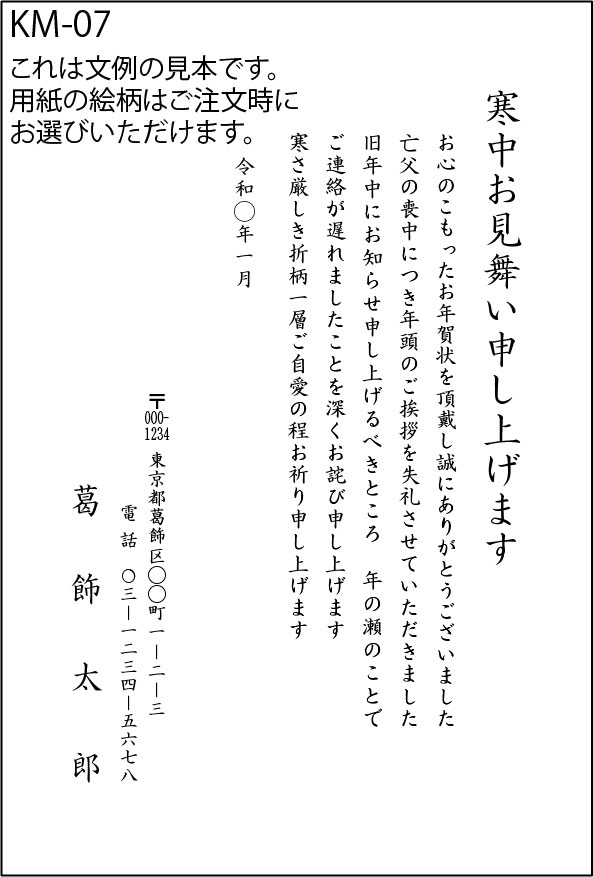 KM-07
これは文例の見本です。
用紙の絵柄はご注文時に
お選びいただけます。
寒中お見舞い申し上げます
お心のこもったお年賀状を頂戴し誠にありがとうございました
亡父の喪中につき年頭のご挨拶を失礼させていただきました
旧年中にお知らせ申し上げるべきところ　年の瀬のことで
ご連絡が遅れましたことを深くお詫び申し上げます
寒さ厳しき折柄一層ご自愛の程お祈り申し上げます
令和〇年一月
〒000-1234 東京都葛飾区〇〇町一―二―三
電話　〇三―一二三四―五六七八
葛飾太郎